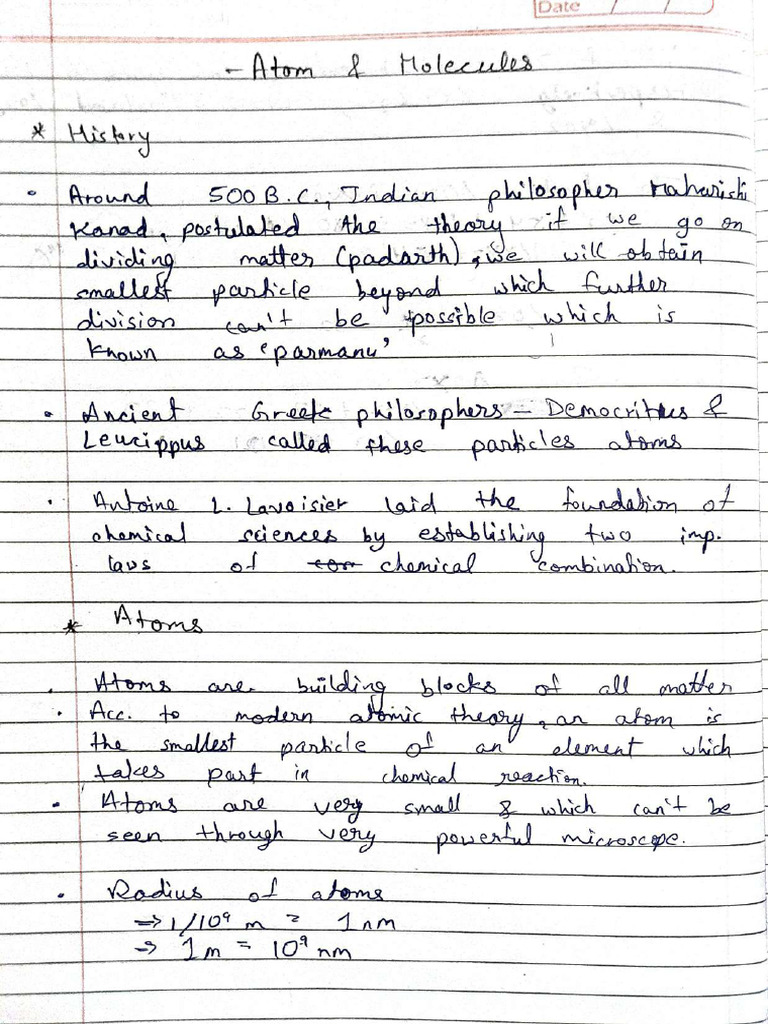 Date / /
- Atom & Molecules
* History
• Around 500 B.C., Indian philosopher Maharishi
Kanad, postulated the theory if we go on
dividing matter (padarth), we will obtain
smallest particle beyond which further
division can't be possible which is
known as 'parmanu'
• Ancient Greek philosophers – Democritus &
Leucippus called these particles atoms
• Antoine L. Lavoisier laid the foundation of
chemical sciences by establishing two imp.
laws of chemical combination.
* Atoms
• Atoms are building blocks of all matter
• Acc. to modern atomic theory, an atom is
the smallest particle of an element which
takes part in chemical reaction.
• Atoms are very small & which can't be
seen through very powerful microscope.
• Radius of atoms
⇒ 1/10⁹ m = 1 nm
⇒ 1 m = 10⁹ nm